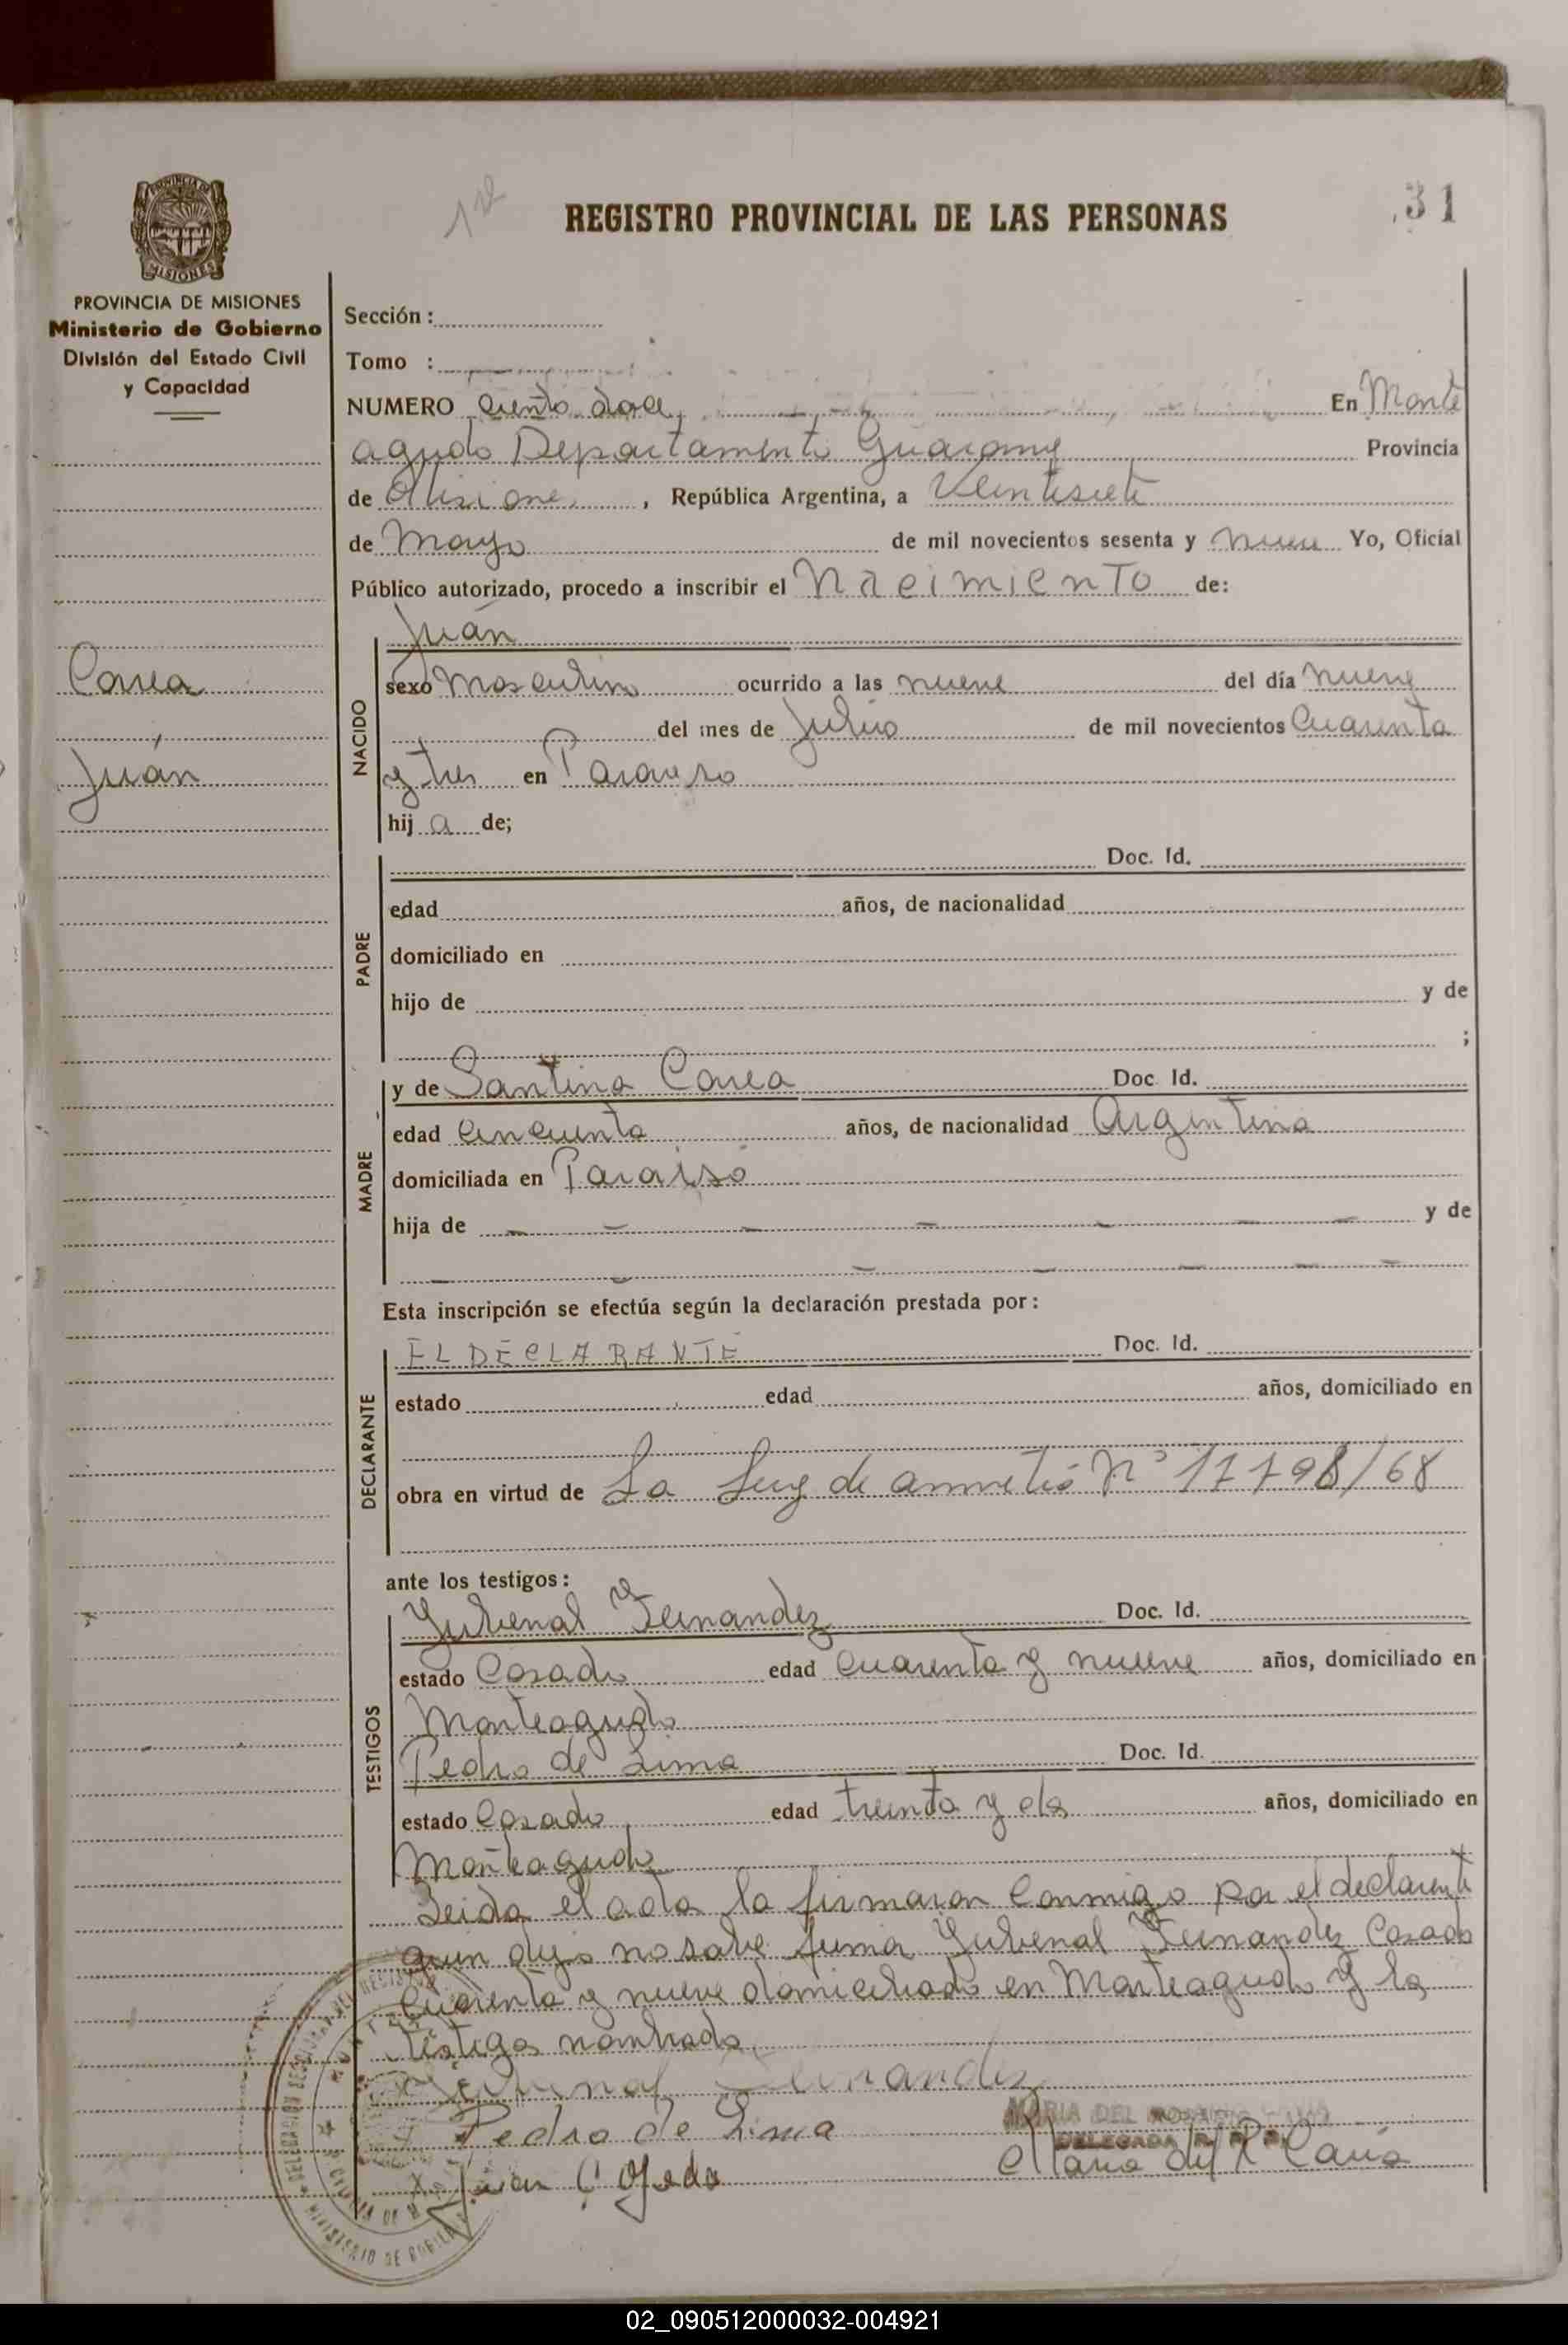 1ra
REGISTRO PROVINCIAL DE LAS PERSONAS
31
PROVINCIA DE MISIONES
MISIONES
PROVINCIA DE MISIONES
Ministerio de Gobierno
División del Estado Civil
y Capacidad
Correa
Juán
Sección :
Tomo :
NUMERO Ciento doce En Monte
agudo Departamento Guarany Provincia
de Misiones , República Argentina, a Veintisiete
de Mayo de mil novecientos sesenta y nueve Yo, Oficial
Público autorizado, procedo a inscribir el Nacimiento de:
NACIDO
Juán
sexo Masculino ocurrido a las nueve del día nueve
del mes de Julio de mil novecientos Cuarenta
y tres en Paraiso
hij a de;
PADRE
Doc. Id.
edad años, de nacionalidad
domiciliado en
hijo de y de
;
MADRE
y de Santina Correa Doc. Id.
edad Cincuenta años, de nacionalidad Argentina
domiciliada en Paraiso
hija de y de
Esta inscripción se efectúa según la declaración prestada por :
DECLARANTE
EL DECLARANTE Doc. Id.
estado edad años, domiciliado en
obra en virtud de La Ley de amnetia N° 17798/68
ante los testigos :
TESTIGOS
Yuvenal Fernandez Doc. Id.
estado Casado edad cuarenta y nueve años, domiciliado en
Monteagudo
Pedro de Lima Doc. Id.
estado Casado edad treinta y dos años, domiciliado en
Monteagudo
Leida el acta la firmaron Conmigo por el declarente
quin dijo no sabe firma Yuvenal Fernandez Casado
Cuarenta y nueve domiciliado en Monteagudo y los
testigos nombrado
Yuvenal Fernandez
Pedro de Lima
MARIA DEL
DELEGADA R. P. P.
Maria del R
Juan
MINISTERIO DE
02_090512000032-004921